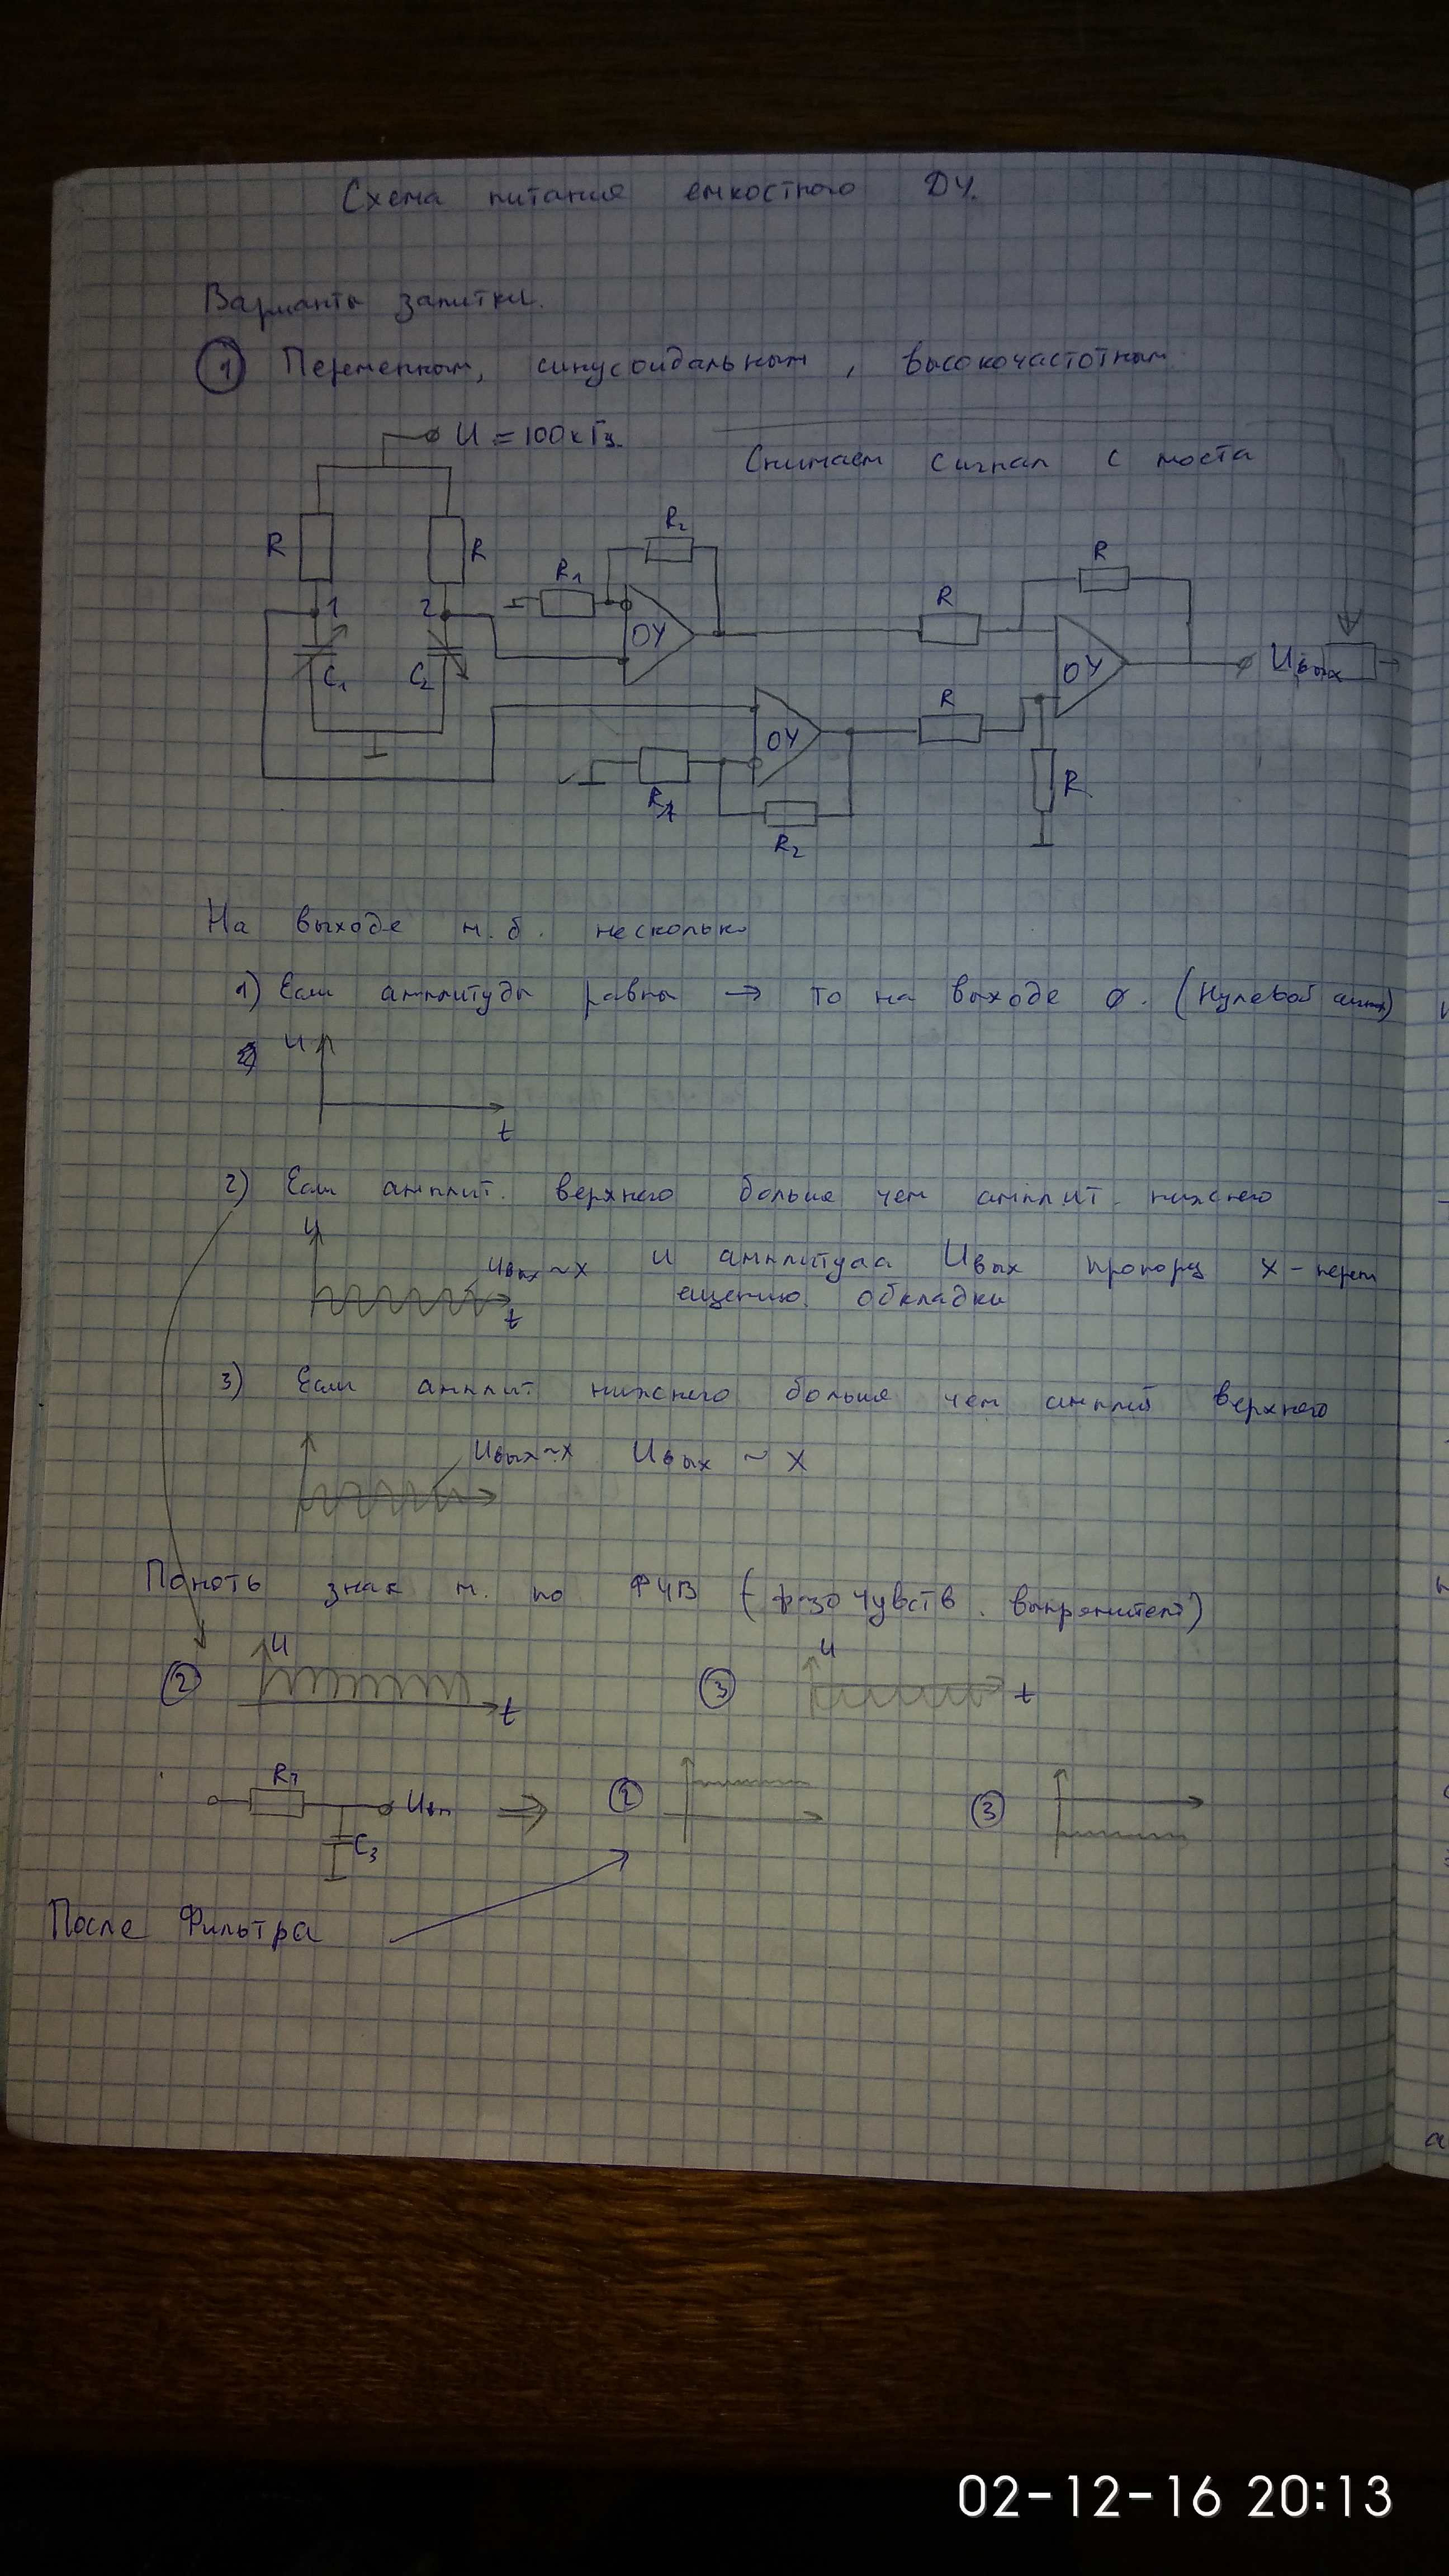 Схема питания емкостного ДУ.
Варианты запитки.
1 Переменным, синусоидальным, высокочастотным
U = 100кГц.
Снимаем сигнал с моста
R R R1 R2 R R
1 2 ОУ
C1 C2 ОУ Uвых
R
ОУ
R1 R
R2
На выходе м.б. несколько
1) Если амплитуды равны → то на выходе 0. (Нулевой сигнал)
U
t
2) Если амплит. верхнего больше чем амплит. нижнего
U
Uвых ~ x и амплитуда Uвых пропорц x - перем
ещению обкладки
t
3) Если амплит нижнего больше чем амплит верхнего
Uвых ~ x Uвых ~ x
Понять знак м. по ФЧВ (фазочувств. выпрямитель)
2 U t 3 U t
R7 Uвп ⇒ 2 3
C3
После Фильтра
02-12-16 20:13